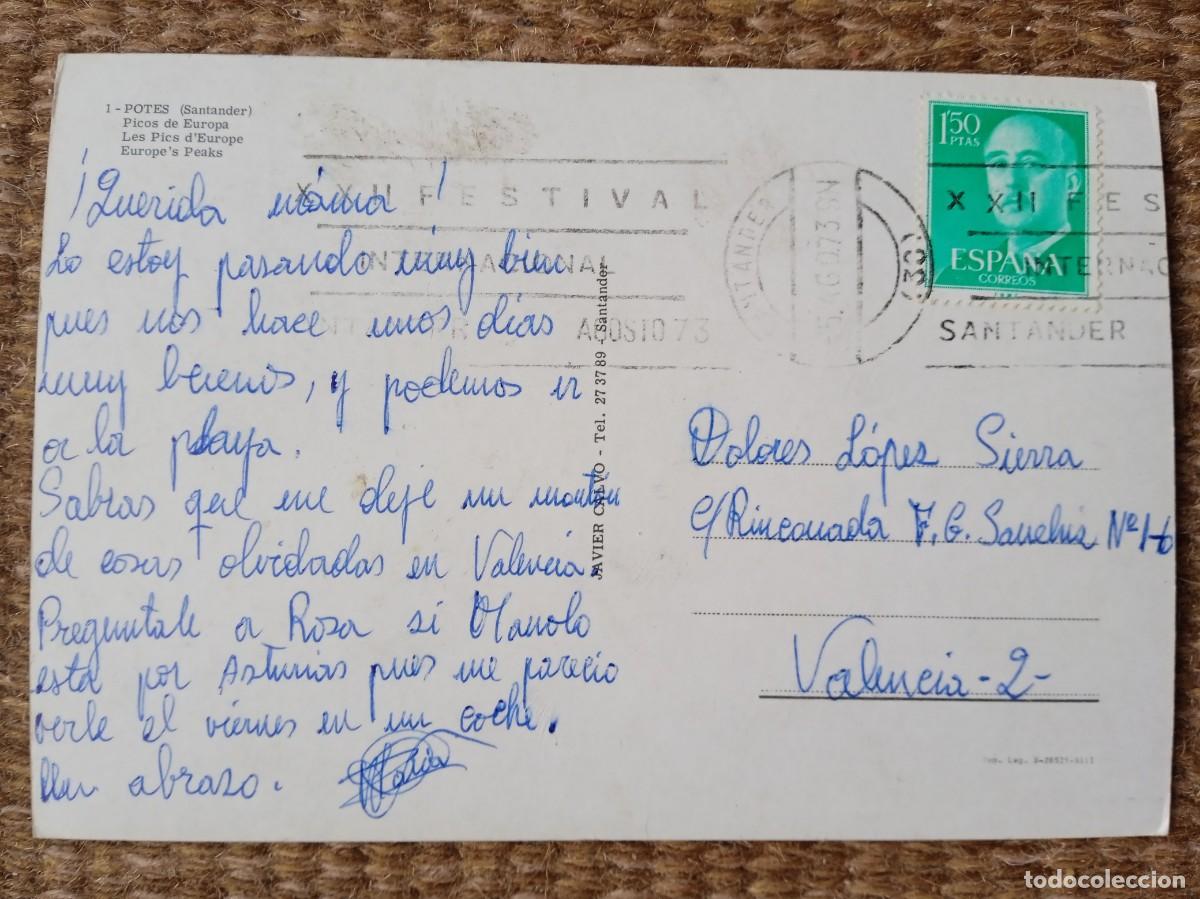 1 - POTES (Santander)
Picos de Europa
Les Pics d'Europe
Europe's Peaks
¡Querida máma!
Lo estoy pasando muy bien
pues nos hace unos días
muy buenos, y podemos ir
a la playa.
Sabras que me dejé un monton
de cosas olvidadas en Valencia.
Preguntale a Rosa si Manolo
esta por Asturias pues me parecio
verle el viernes en un coche.
Un abrazo. Maria
JAVIER CALVO - Tel. 27 37 89 - Santander
XXII FESTIVAL
INTERNACIONAL
AGOSTO 73
1'50
PTAS
ESPAÑA
CORREOS
XXII FES
INTERNAC
SANTANDER
Dolores López Sierra
c/ Rinconada F. G. Sanchiz Nº 1-6
Valencia-2-
todocoleccion